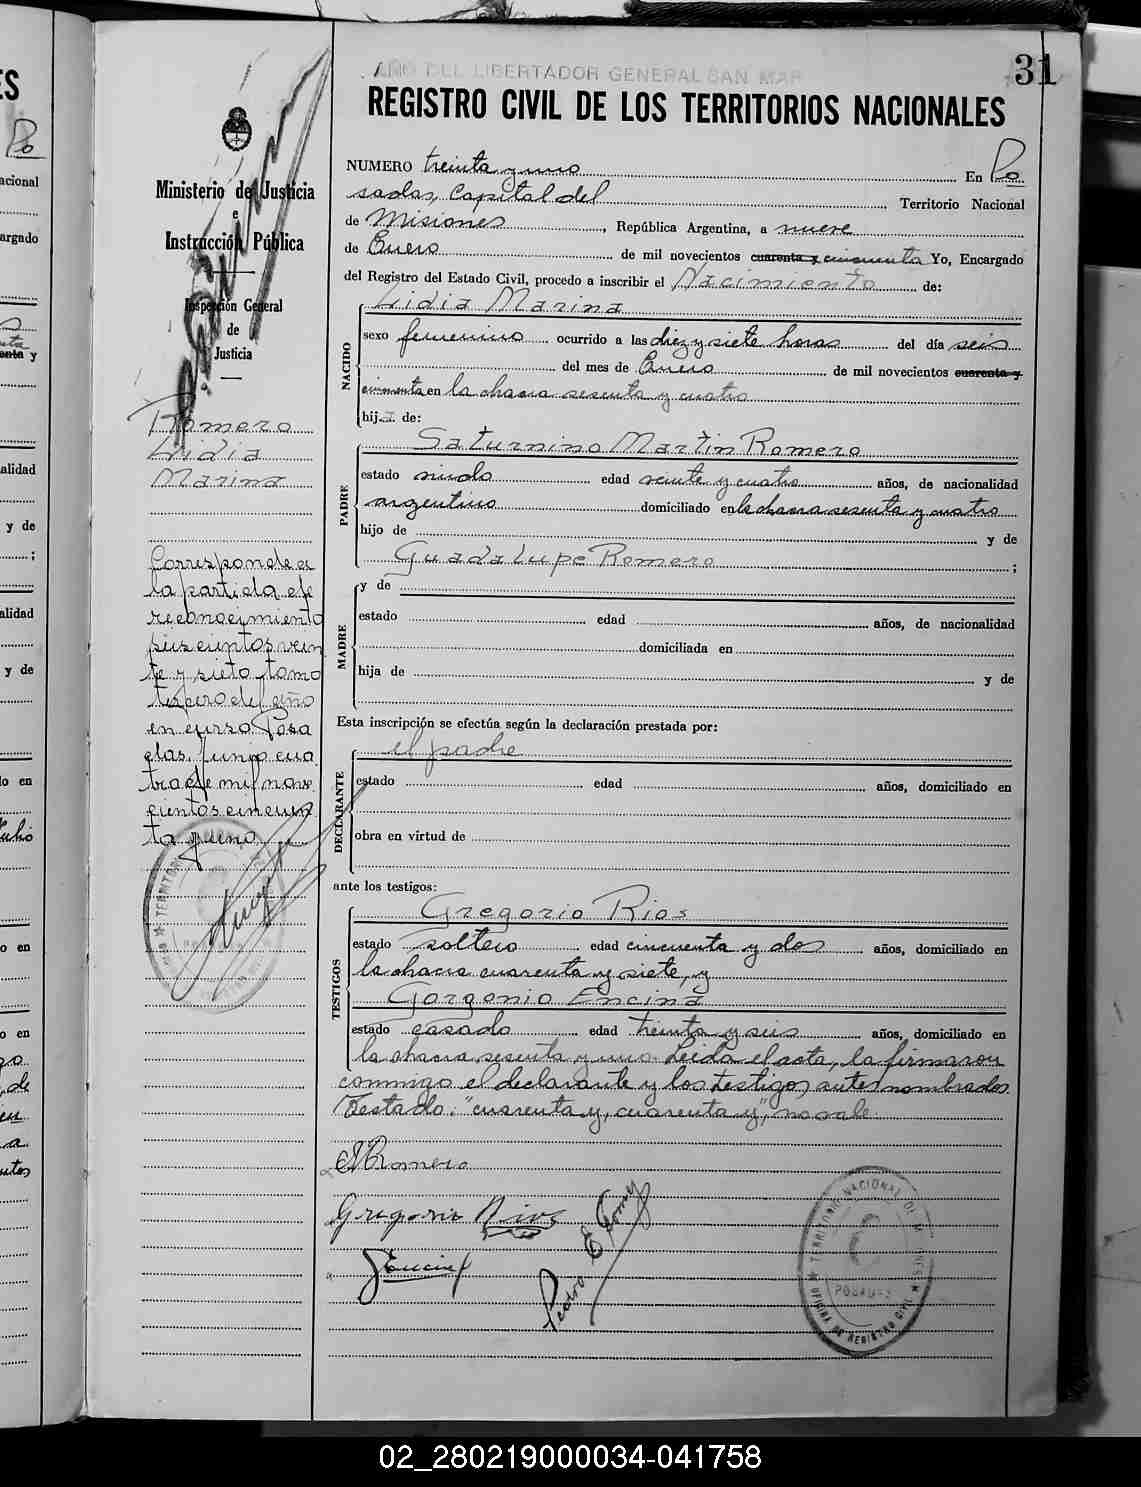 31
AÑO DEL LIBERTADOR GENERAL SAN MAR
REGISTRO CIVIL DE LOS TERRITORIOS NACIONALES
Ministerio de Justicia
e
Instrucción Pública
Inspección General
de
Justicia
Romero
Lidia
Marina
Corresponde a
la partida de
reconocimiento
seiscientos vein
te y siete tomo
tercero del año
en curso. Posa
das, Junio cua
tro de mil nove
cientos cincuen
ta y uno
NUMERO treinta y uno En Po
sadas, Capital del Territorio Nacional
de Misiones, República Argentina, a nueve
de Enero de mil novecientos cuarenta y cincuenta Yo, Encargado
del Registro del Estado Civil, procedo a inscribir el Nacimiento de:
NACIDO
Lidia Marina
sexo femenino ocurrido a las diez y siete horas del día seis
del mes de Enero de mil novecientos cuarenta y
cincuenta en la chacra sesenta y cuatro
hija de:
PADRE
Saturnino Martin Romero
estado viudo edad veinte y cuatro años, de nacionalidad
argentino domiciliado en la chacra sesenta y cuatro
hijo de y de
Guadalupe Romero ;
MADRE
y de
estado edad años, de nacionalidad
domiciliada en
hija de y de
Esta inscripción se efectúa según la declaración prestada por:
DECLARANTE
el padre
estado edad años, domiciliado en
obra en virtud de
ante los testigos:
TESTIGOS
Gregorio Rios
estado soltero edad cincuenta y dos años, domiciliado en
la chacra cuarenta y siete, y
Gorgonio Encina
estado casado edad treinta y seis años, domiciliado en
la chacra sesenta y uno. Leida el acta, la firmaron
conmigo el declarante y los testigos antes nombrados.
Testado: "cuarenta y, cuarenta y", no vale
Romero
Gregorio Rios
Encina
Pedro E Gomez
TERRITORIO NACIONAL DE MISIONES
POSADAS
OFICINA DE REGISTRO CIVIL
02_280219000034-041758